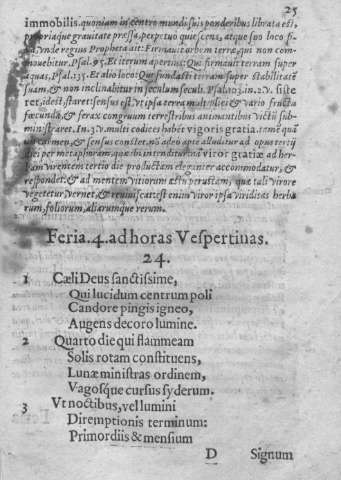 25
immobilis. quoniam in centro mundi suis ponderibus librata est,
propriaque gravitate pressa, perpetuo quiescens, atque suo loco fi-
xa, unde regius Propheta ait: Firmavit orbem terræ, qui non com-
movebitur. Psal. 95. Et iterum apertius: Qui firmavit terram super
aquas, Psal. 135. Et alio loco: Qui fundasti terram super stabilitatē
suam, & non inclinabitur in seculum seculi. Psal. 103. in. 2. V. siste
ret, id est, staret: sensus est, vt ipsa terra multiplici & vario fructu
fœcunda, & ferax congruum terrestribus animantibus victū sub-
ministraret. In. 3. V. multi codices habēt vigoris gratia. tamē quā
vis carmen, & sensus constet, nō adeo apte alluditur ad opus tertij
diei per metaphoram, quæ ibi intenditur: nā viror gratiæ ad her-
bam virentem tertio die productam eleganter accommodatur, &
respondet: & ad mentem vitiorum æstu perustam, quæ tali virore
vegetetur, vernet, & reuiuiscat: est enim viror ipsa viriditas herba
rum, foliorum, aliarumque rerum.
Feria. 4. ad horas Vespertinas.
24.
1 Cæli Deus sanctissime,
Qui lucidum centrum poli
Candore pingis igneo,
Augens decoro lumine.
2 Quarto die qui flammeam
Solis rotam constituens,
Lunæ ministras ordinem,
Vagosq́ue cursus syderum.
3 Vt noctibus, vel lumini
Diremptionis terminum:
Primordiis & mensium
D Signum